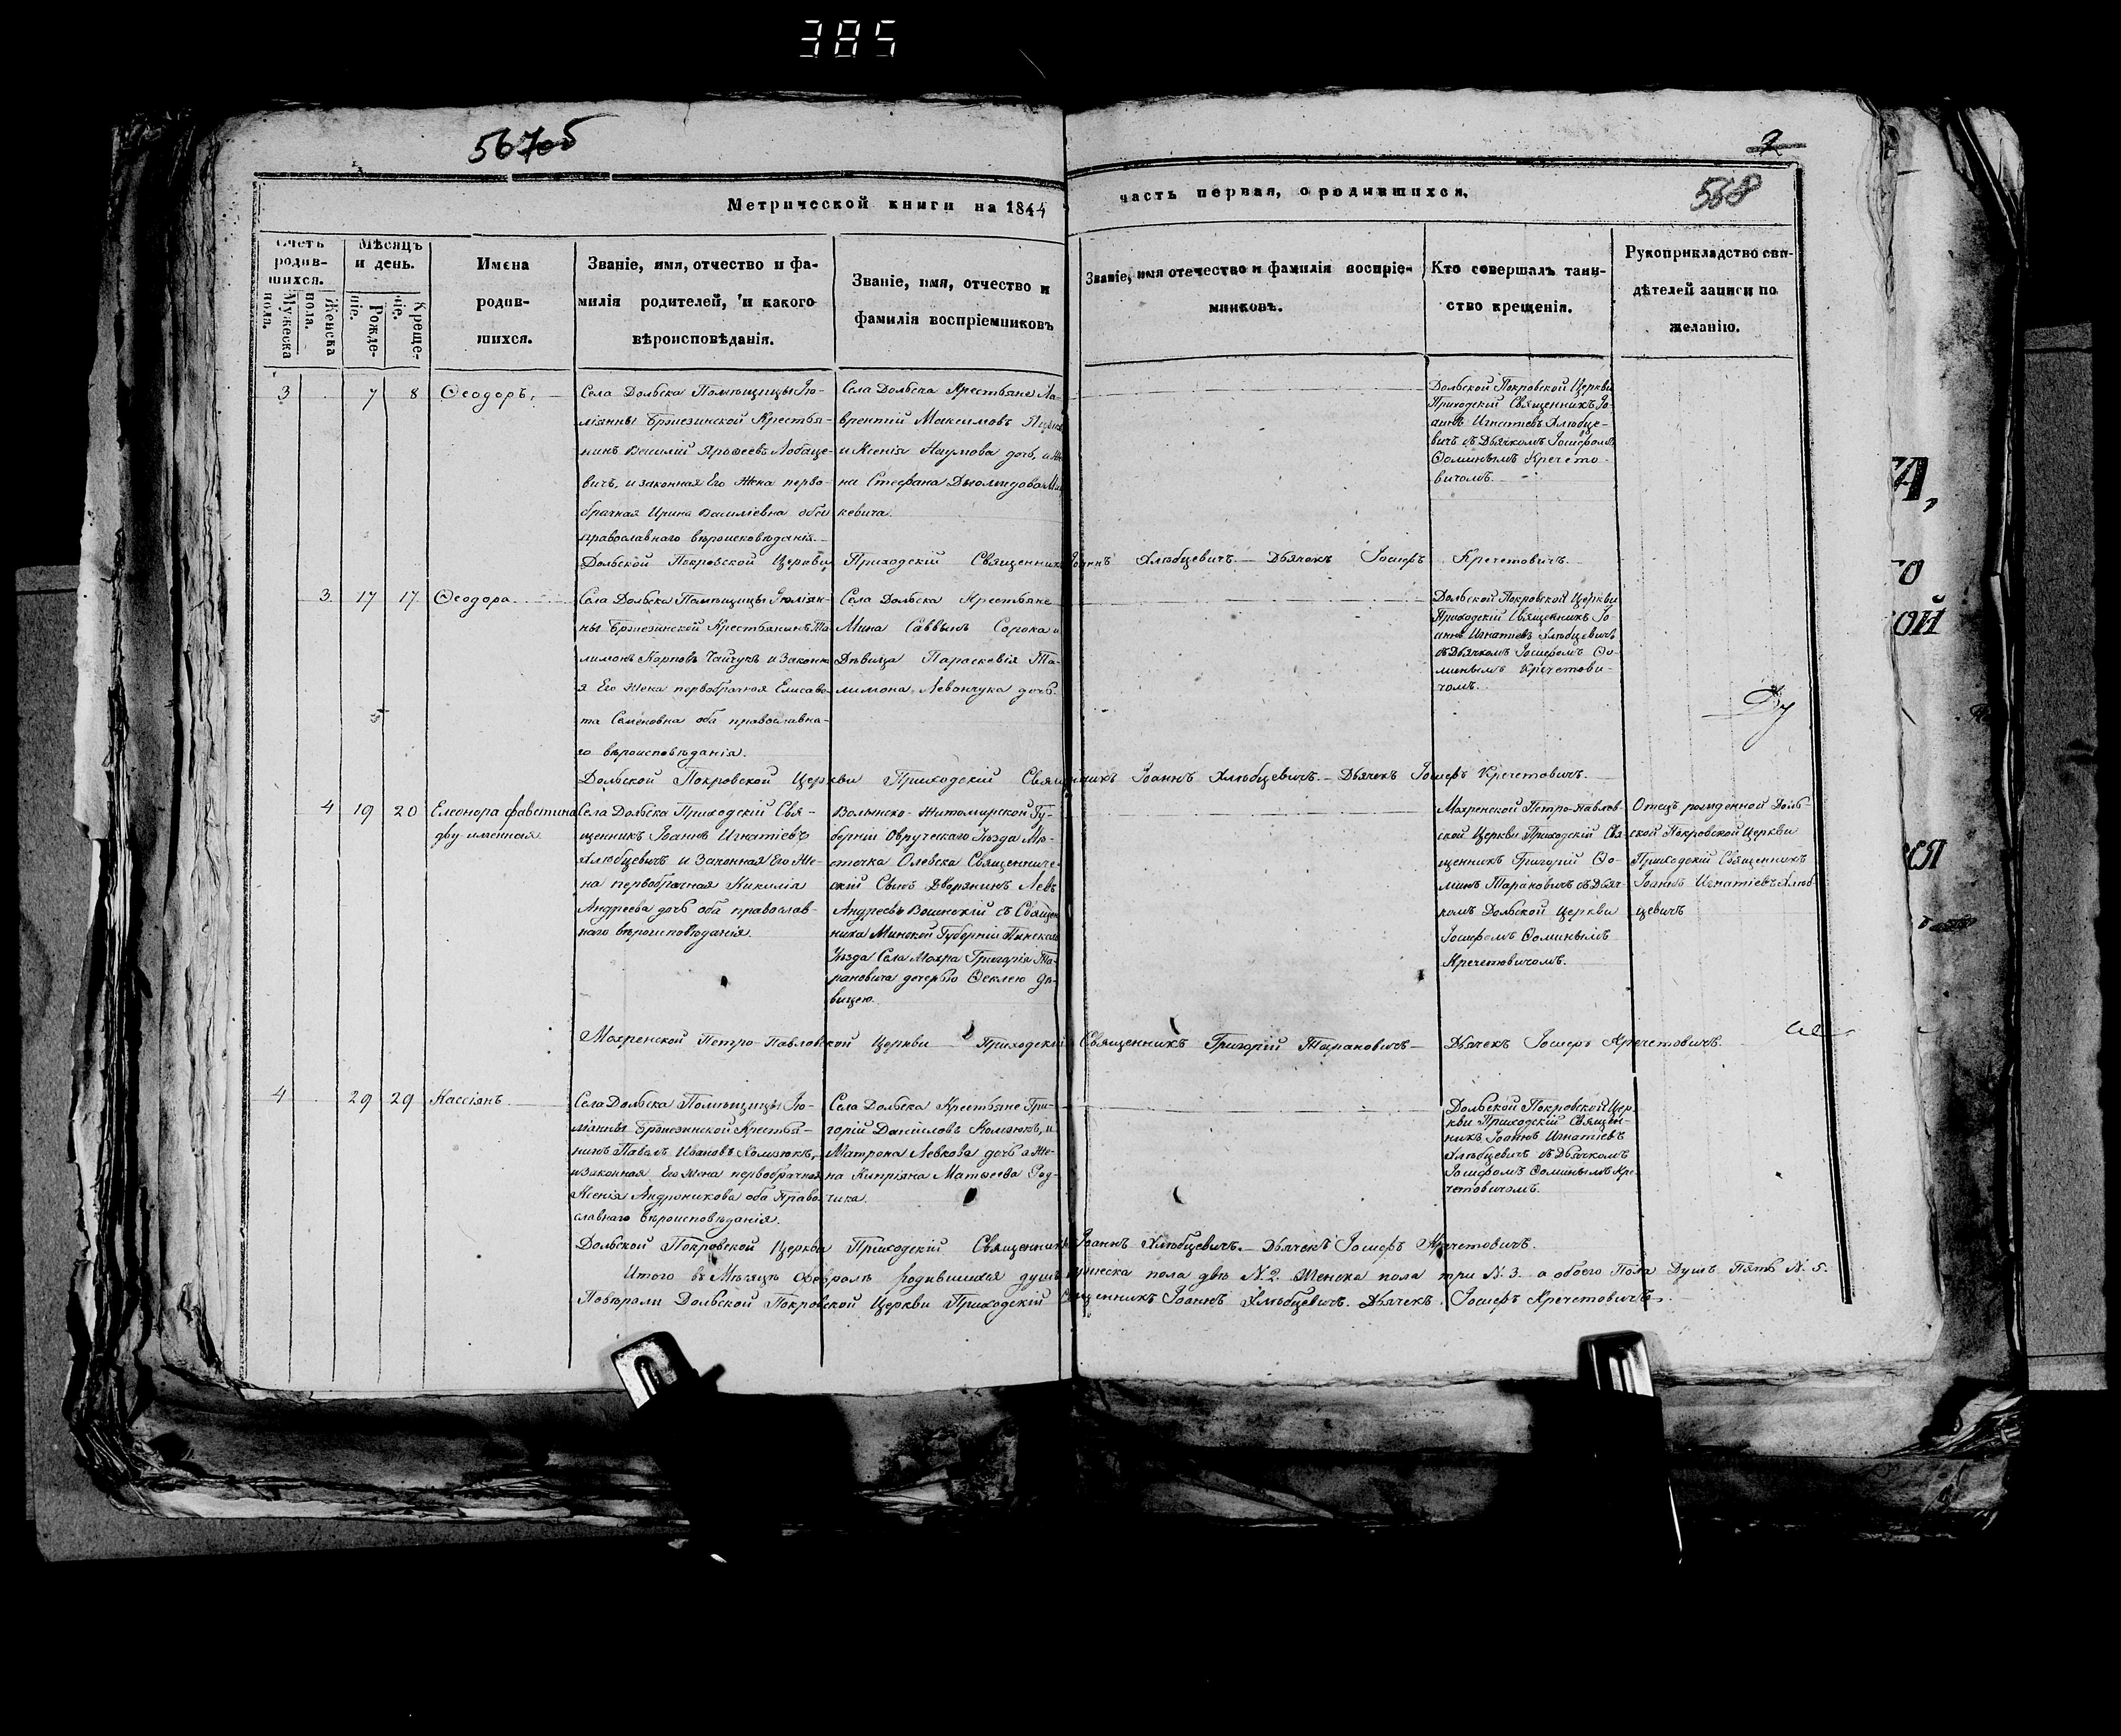 385
567об
2
568
Метрической книги на 1844
часть первая, о родившихся.
Счетъ
родив-
шихся.
Мужеска
пола.
Женска
пола.
Мѣсяцъ
и день.
Рожде-
ніе.
Креще-
ніе.
Имена
родив-
шихся.
Званіе, имя, отчество и фа-
милія родителей, и какого
вѣроисповѣданія.
Званіе, имя, отчество и
фамилія воспріемниковъ
Званіе, имя отечество и фамилія воспріе-
мниковъ.
Кто совершалъ таин-
ство крещенія.
Рукоприкладство сви-
дѣтелей записи по
желанію.
3
7
8
Ѳеодоръ,
Села Дольска Помѣщицы Ю-
ліянны Бржензинской Крестья-
нинъ Василій Ярофеевъ Лобаце-
вичъ, и законная Его Жена перво-
брачная Ирина Василіевна оба
православнаго вѣроисповѣданія.
Села Дольска Крестьяне Ла-
врентій Максимовъ
и Ксенія Наумова дочь, а Же
на Стефана
кевича.
Дольской Покровской Церкви
Приходскій Священникъ Іо-
аннъ Игнатіевъ Хлѣбце-
вичъ съ Дьячкомъ Іосифомъ
Ѳоминымъ Кречето-
вичомъ.
Дольской Покровской Церкви Приходскій Священникъ Іоаннъ Хлѣбцевичъ. Дьячекъ Іосифъ Кречетовичъ.
3
17
17
Ѳеодора
Села Дольска Помѣщицы Юліян-
ны Бржензинской Крестьянинъ Та-
лимонъ Карповъ Чайчукъ и Законна
я Его жена первобрачная Елисаве-
та Семеновна оба православна-
го вѣроисповѣданія.
Села Дольска Крестьяне
Мина Саввинъ Сорока и
Дѣвица Параскевія Та-
лимона Левончука дочь.
Дольской Покровской Церкви
Приходскій Священникъ Іо-
аннъ Игнатіевъ Хлѣбцевичъ
съ Дьячкомъ Іосифомъ Ѳо-
минымъ Кречетови-
чомъ.
Ду
Дольской Покровской Церкви Приходскій Священникъ Іоаннъ Хлѣбцевичъ. Дьячекъ Іосифъ Кречетовичъ.
4
19
20
Елеонора фавстина
дву-именная
Села Дольска Приходскій Свя-
щенникъ Іоаннъ Игнатіевъ
Хлѣбцевичъ и Законная Его Же-
на первобрачная Кикилія
Андреева дочь оба православ-
наго вѣроисповѣданія.
Волынско-Житомирской Гу-
берніи Овручскаго Уѣзда Мѣ-
стечка Олевска Священниче-
скій Сынъ Дворянинъ Левъ
Андреевъ Вошнскій съ Священ
ника Минской Губерніи Пинскаго
Уѣзда Села Мохра Григорія Та-
рановича дочерью Ѳеклею дѣ-
вицею.
Мохренской Петро-Павлов-
ской Церкви Приходскій Свя-
щенникъ Григорій Ѳо-
минъ Тарановичъ съ Дьяч-
комъ Дольской Церкви
Іосифомъ Ѳоминымъ
Кречетовичомъ.
Отецъ рожденной Доль-
ской Покровской Церкви
Приходскій Священникъ
Іоаннъ Игнатіевъ Хлѣб-
цевичъ
Мохренской Петро-Павловской Церкви Приходскій Священникъ Григорій Тарановичъ Дьячекъ Іосифъ Кречетовичъ.
4
29
29
Кассіянъ
Села Дольска Помѣщицы Ю-
ліянны Бржензинской Крестья-
нинъ Павелъ Ивановъ Хомзюкъ,
и законная Его жена первобрачная
Ксенія Андроникова оба Право-
славнаго вѣроисповѣданія.
Села Дольска Крестьяне Гри-
горій Даніиловъ Комзюкъ, и
Матрона Левкова дочь а Же-
на Кипріяна Матѳеева Год-
чика.
Дольской Покровской Цер-
кви Приходскій Священ-
никъ Іоаннъ Игнатіевъ
Хлѣбцевичъ съ Дьячкомъ
Іосифомъ Ѳоминымъ Кре-
четовичомъ.
Дольской Покровской Церкви Приходскій Священникъ Іоаннъ Хлѣбцевичъ. Дьячекъ Іосифъ Кречетовичъ.
Итого въ Мѣсяцѣ Февралѣ родившихся душъ мужеска пола двѣ N. 2. Женска пола три N. 3. а обоего Пола Душъ Пять N. 5.
Повѣряли Дольской Покровской Церкви Приходскій Священникъ Іоаннъ Хлѣбцевичъ. Дьячекъ Іосифъ Кречетовичъ.